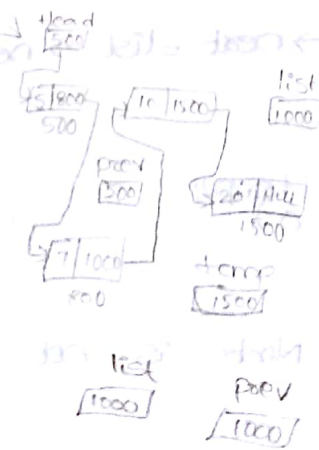 Head
500
5 800
500
10 1500
list
1000
prev
500
20 Null
1500
7 1000
800
temp
1500
list
1000
prev
1000